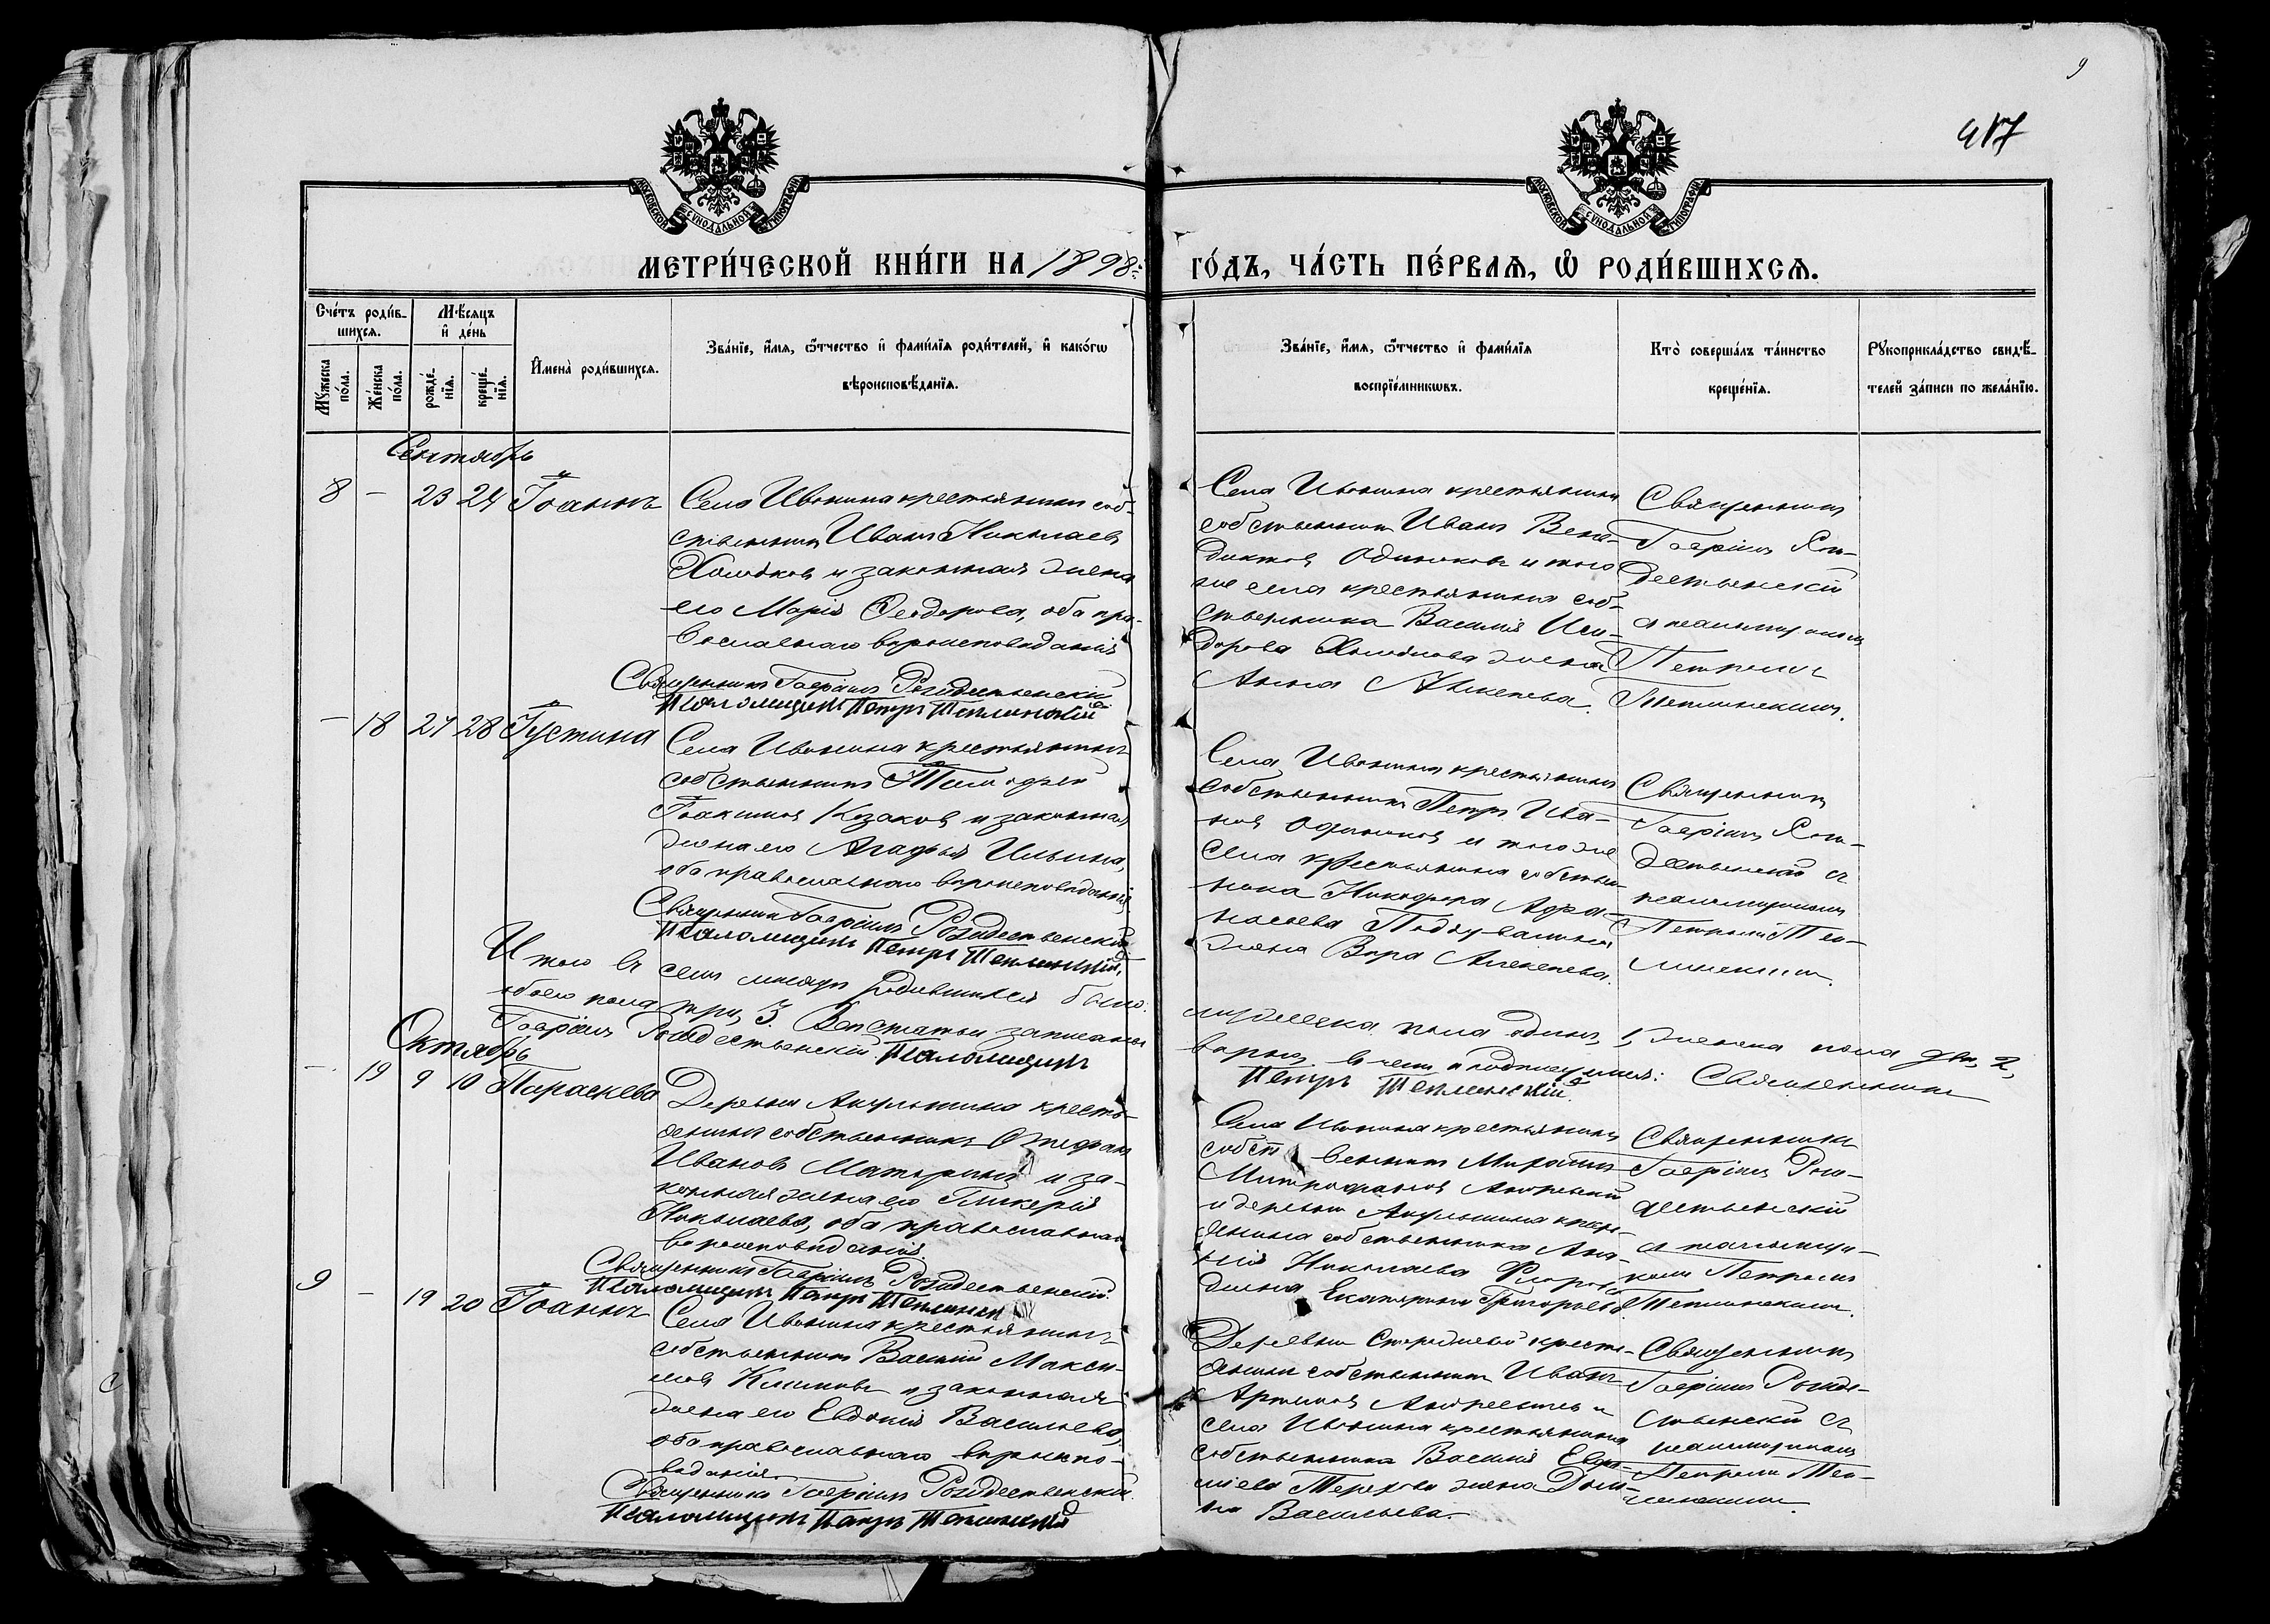 9
417
МОСКОВСКОЙ СѴНОДАЛЬНОЙ ТИПОГРАФІИ
МОСКОВСКОЙ СѴНОДАЛЬНОЙ ТИПОГРАФІИ
МЕТРИ́ЧЕСКОЙ КНИ́ГИ НА 1898 ГО́ДЪ, ЧА́СТЬ ПЕ́РВАѦ, Ѡ҆ РОДИ́ВШИХСѦ.
Сче́тъ роди́в-
шихсѧ.
Мѣ́сѧцъ
и҆ де́нь
Мꙋ́жеска
по́ла.
Же́нска
по́ла.
рожде́-
нїѧ.
креще́-
нїѧ.
И҆мена̀ роди́вшихсѧ.
Зва́нїе, и҆́мѧ, ѻ҆́тчество и҆ фами́лїѧ роди́телей, и҆ како́гѡ
вѣроисповѣ́данїѧ.
Зва́нїе, и҆́мѧ, ѻ҆́тчество и҆ фами́лїѧ
воспрїе́мникѡвъ.
Кто̀ соверша́лъ та́инство
креще́нїѧ.
Рꙋкоприкла́дство свидѣ́-
телей за́писи по жела́нїю.
Сентябрь
8 - 23 24 Іоаннъ
Села Ивонина крестьянинъ соб-
ственникъ Иванъ Николаевъ
и законная жена
его Марія Ѳеодорова, оба пра-
вославнаго вѣроисповѣданія
Священникъ Гавріилъ Рождественскій
Псаломщикъ Петръ Теплинскій
Села Ивонина крестьянинъ
собственникъ Иванъ Вене-
диктовъ Одиноковъ и того
же села крестьянина соб-
ственника Василія Иси-
дорова жена
Анна Алексеева.
Священникъ
Гавріилъ Рож-
дественскій
съ псаломщикомъ
Петромъ
Теплинскимъ.
- 18 27 28 Іустина
Села Ивонина крестьянинъ
собственникъ Тимофей
Іоакимовъ Козаковъ и законная
жена его Агафья Ильина,
оба православнаго вѣроисповѣданія
Священникъ Гавріилъ Рождественскій
Псаломщикъ Петръ Теплинскій
Села Ивонина крестьянинъ
собственникъ Петръ Ива-
новъ Одиноковъ и того же
села крестьянина собствен-
ника Никифора Афа-
насьева
жена Вѣра Алексеева.
Священникъ
Гавріилъ Рож-
дественскій съ
псаломщикомъ
Петромъ Теп-
линскимъ.
Итого въ семъ мѣсяцѣ родившихся было: мужеска пола одинъ, 1, женска пола два, 2,
обоего пола три, 3. Всѣ статьи записаны вѣрно, въ чемъ и подписуемся: Священникъ
Гавріилъ Рождественскій. Псаломщикъ Петръ Теплинскій.
Октябрь
- 19 9 10 Параскева
Деревни Акульшина кресть-
янинъ собственникъ Стефанъ
Ивановъ и за-
конная жена его Гликерія
Николаева, оба православнаго
вѣроисповѣданія.
Священникъ Гавріилъ Рождественскій.
Псаломщикъ Петръ Теплинскій
Села Ивонина крестьянинъ
собственникъ Михаилъ
Митрофановъ
и деревни Акульшина кресть-
янина собственника
Николаева
жена Екатерина Григорьева
Священникъ
Гавріилъ Рож-
дественскій
съ псаломщи-
комъ Петромъ
Теплинскимъ.
9 - 19 20 Іоаннъ
Села Ивонина крестьянинъ
собственникъ Василій Макси-
мовъ Климовъ и законная
жена его Евдокія Васильева,
оба православнаго вѣроиспо-
вѣданія.
Священникъ Гавріилъ Рождественскій.
Псаломщикъ Петръ Теплинскій
Деревни кресть-
янинъ собственникъ Иванъ
Артемовъ и
села Ивонина крестьянина
собственника Василія
Терехова жена Дом-
на Васильева.
Священникъ
Гавріилъ Рожде-
ственскій съ
псаломщикомъ
Петромъ Теп-
линскимъ.